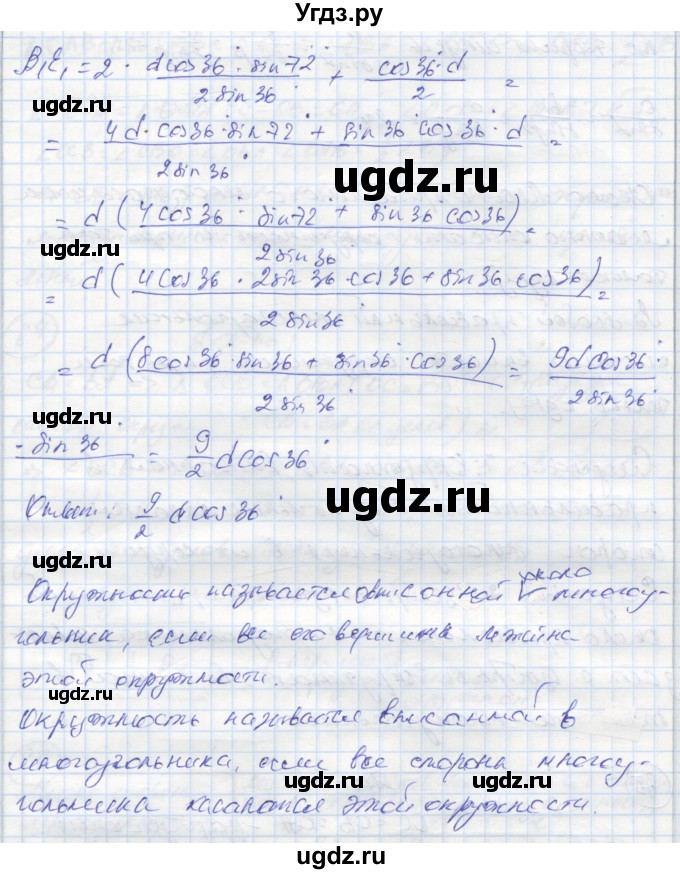 Угдз.ру
B₁E₁ = 2 · (d cos 36° · sin 72°)/(2 sin 36°) + (cos 36° · d)/2 =
= (4d · cos 36° · sin 72° + sin 36° cos 36° · d)/(2 sin 36°) =
ugdz.ru
ugdz.ru
= d (4 cos 36° · sin 72° + sin 36° cos 36)/(2 sin 36) =
ugdz.ru
= d (4 cos 36 · 2 sin 36 · cos 36 + sin 36 · cos 36)/(2 sin 36) =
ugdz.ru
ugdz.ru
= d (8 cos 36° · sin 36 + sin 36° · cos 36)/(2 sin 36) = (9 d cos 36° ·)/(2 sin 36)
ugdz.ru
· sin 36 = 9/2 d cos 36°
ugdz.ru
Ответ: 9/2 d cos 36°
ugdz.ru
около
Окружность называется описанной многоу-
гольника, если все его вершины лежат на
этой окружности.
ugdz.ru
ugdz.ru
Окружность называется вписанной в
многоугольника, если все стороны многоу-
ugdz.ru
гольника касаются этой окружности.
ugdz.ru
ugdz.ru